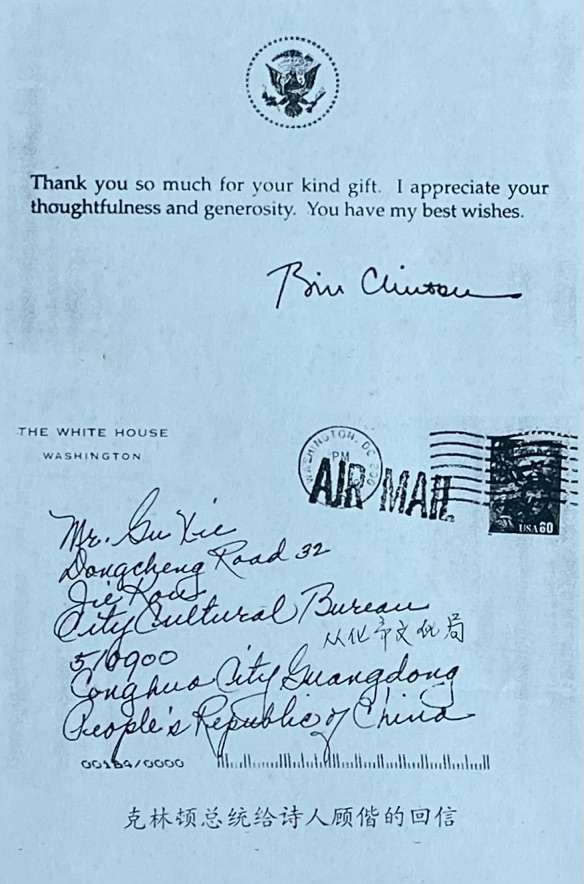 Thank you so much for your kind gift. I appreciate your
thoughtfulness and generosity. You have my best wishes.
Bill Clinton
THE WHITE HOUSE
WASHINGTON
WASHINGTON, DC
PM
AIR MAIL
USA60
Mr. Gu Xie
Dongcheng Road 32
Jie Kou
City Cultural Bureau
从化市文化局
510900
Conghua City Guangdong
People's Republic of China
00184/0000
克林顿总统给诗人顾偕的回信